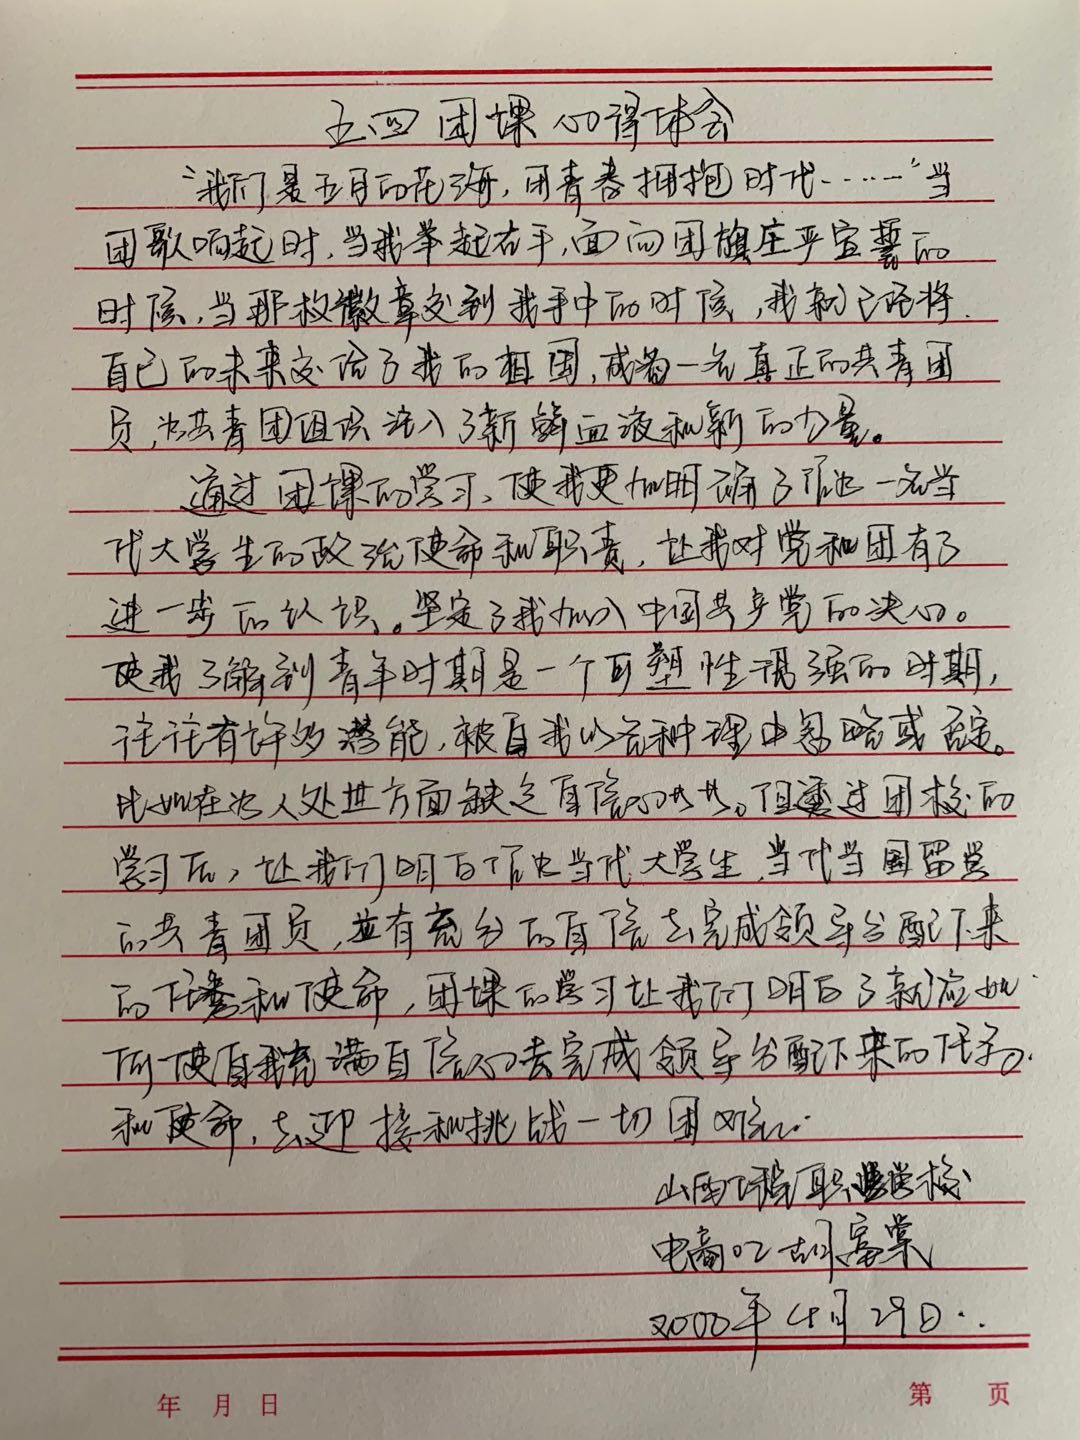 五四团课心得体会
“我们是五月的花海，用青春拥抱时代……”当
团歌响起时，当我举起右手，面向团旗庄严宣誓的
时候，当那枚徽章交到我手中的时候，我就已经将
自己的未来交给了我的祖国，成为一名真正的共青团
员，为共青团组织注入了新鲜血液和新的力量。
通过团课的学习、使我更加明确了作为一名当
代大学生的政治使命和职责，让我对党和团有了
进一步的认识。坚定了我加入中国共产党的决心。
使我了解到青年时期是一个可塑性很强的时期，
往往有许多潜能，被自我以各种理由忽略或否定。
比如在为人处世方面缺乏自信心
但通过团校的
学习后，让我们明白作为当代大学生
的共青团员，并有充分的自信去完成领导分配下来
的任务和使命，团课的学习让我们明白了就应如
何使自我充满自信心去完成领导分配下来的任务
和使命，去迎接和挑战一切困难
山西
职业学校
电商02 胡富棠
年4月29日
年 月 日
第 页